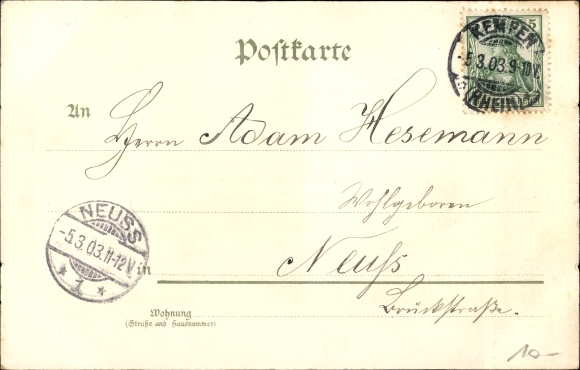 Postkarte
5
KEMPEN
-5.3.03.9-10V.
(RHEINL)
An
Herrn Adam Hesemann
Wohlgeboren
NEUSS
-5.3.03.11-12V
* 1 *
in Neuß
Brückstraße.
Wohnung
(Straße und Hausnummer)
10-